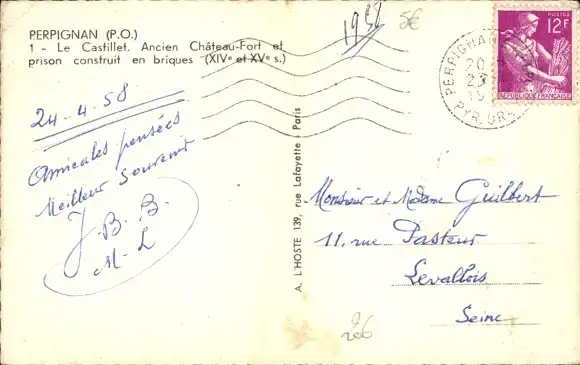 PERPIGNAN (P.O.)
1 - Le Castillet. Ancien Château-Fort et
prison construit en briques (XIVe et XVe s.)
24-4-58
Amicales pensées
Meilleur Souvenir
J. B. B.
M-L
A. L'HOSTE 139, rue Lafayette - Paris
5€
POSTES
12F
REPUBLIQUE FRANÇAISE
PERPIGNAN
20
PYR. OR
Monsieur et Madame Guilbert
11, rue Pasteur
Levallois
Seine